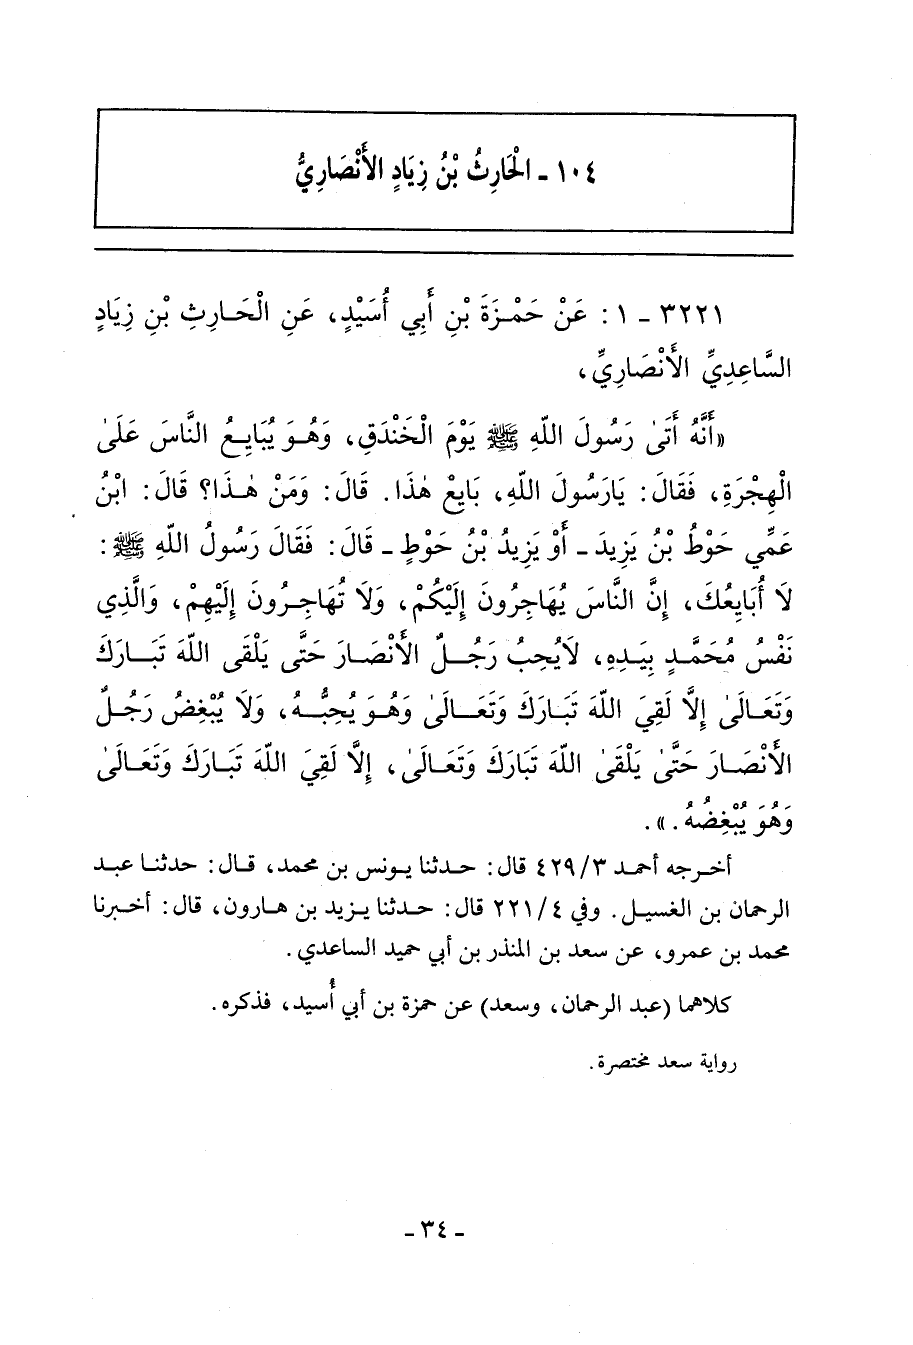 ١٠٤ - الْحَارِثُ بْنُ زِيَادٍ الأَنْصَارِيُّ
٣٢٢١ - ١ : عَنْ حَمْزَةَ بْنِ أَبِي أُسَيْدٍ، عَنِ الْحَارِثِ بْنِ زِيَادٍ
السَّاعِدِيِّ الأَنْصَارِيِّ،
«أَنَّهُ أَتَىٰ رَسُولَ اللّهِ ﷺ يَوْمَ الْخَنْدَقِ، وَهُوَ يُبَايِعُ النَّاسَ عَلَىٰ
الْهِجْرَةِ، فَقَالَ : يَارَسُولَ اللّهِ، بَايِعْ هٰذَا. قَالَ : وَمَنْ هٰذَا؟ قَالَ : ابْنُ
عَمِّي حَوْطُ بْنُ يَزِيدَ - أَوْ يَزِيدُ بْنُ حَوْطٍ - قَالَ : فَقَالَ رَسُولُ اللّهِ ﷺ :
لَا أُبَايِعُكَ، إِنَّ النَّاسَ يُهَاجِرُونَ إِلَيْكُمْ، وَلَا تُهَاجِرُونَ إِلَيْهِمْ، وَالَّذِي
نَفْسُ مُحَمَّدٍ بِيَدِهِ، لَايُحِبُّ رَجُلٌ الأَنْصَارَ حَتَّى يَلْقَى اللّهَ تَبَارَكَ
وَتَعَالَىٰ إِلَّا لَقِيَ اللّهَ تَبَارَكَ وَتَعَالَىٰ وَهُوَ يُحِبُّهُ، وَلَا يُبْغِضُ رَجُلٌ
الأَنْصَارَ حَتَّىٰ يَلْقَىٰ اللّهَ تَبَارَكَ وَتَعَالَىٰ، إِلَّا لَقِيَ اللّهَ تَبَارَكَ وَتَعَالَىٰ
وَهُوَ يُبْغِضُهُ. ».
أخرجه أحمد ٤٢٩/٣ قال : حدثنا يونس بن محمد، قال : حدثنا عبد
الرحمان بن الغسيل. وفي ٢٢١/٤ قال : حدثنا يزيد بن هارون، قال : أخبرنا
محمد بن عمرو، عن سعد بن المنذر بن أبي حميد الساعدي.
كلاهما (عبد الرحمان، وسعد) عن حمزة بن أبي أُسيد، فذكره.
رواية سعد مختصرة.
- ٣٤ -